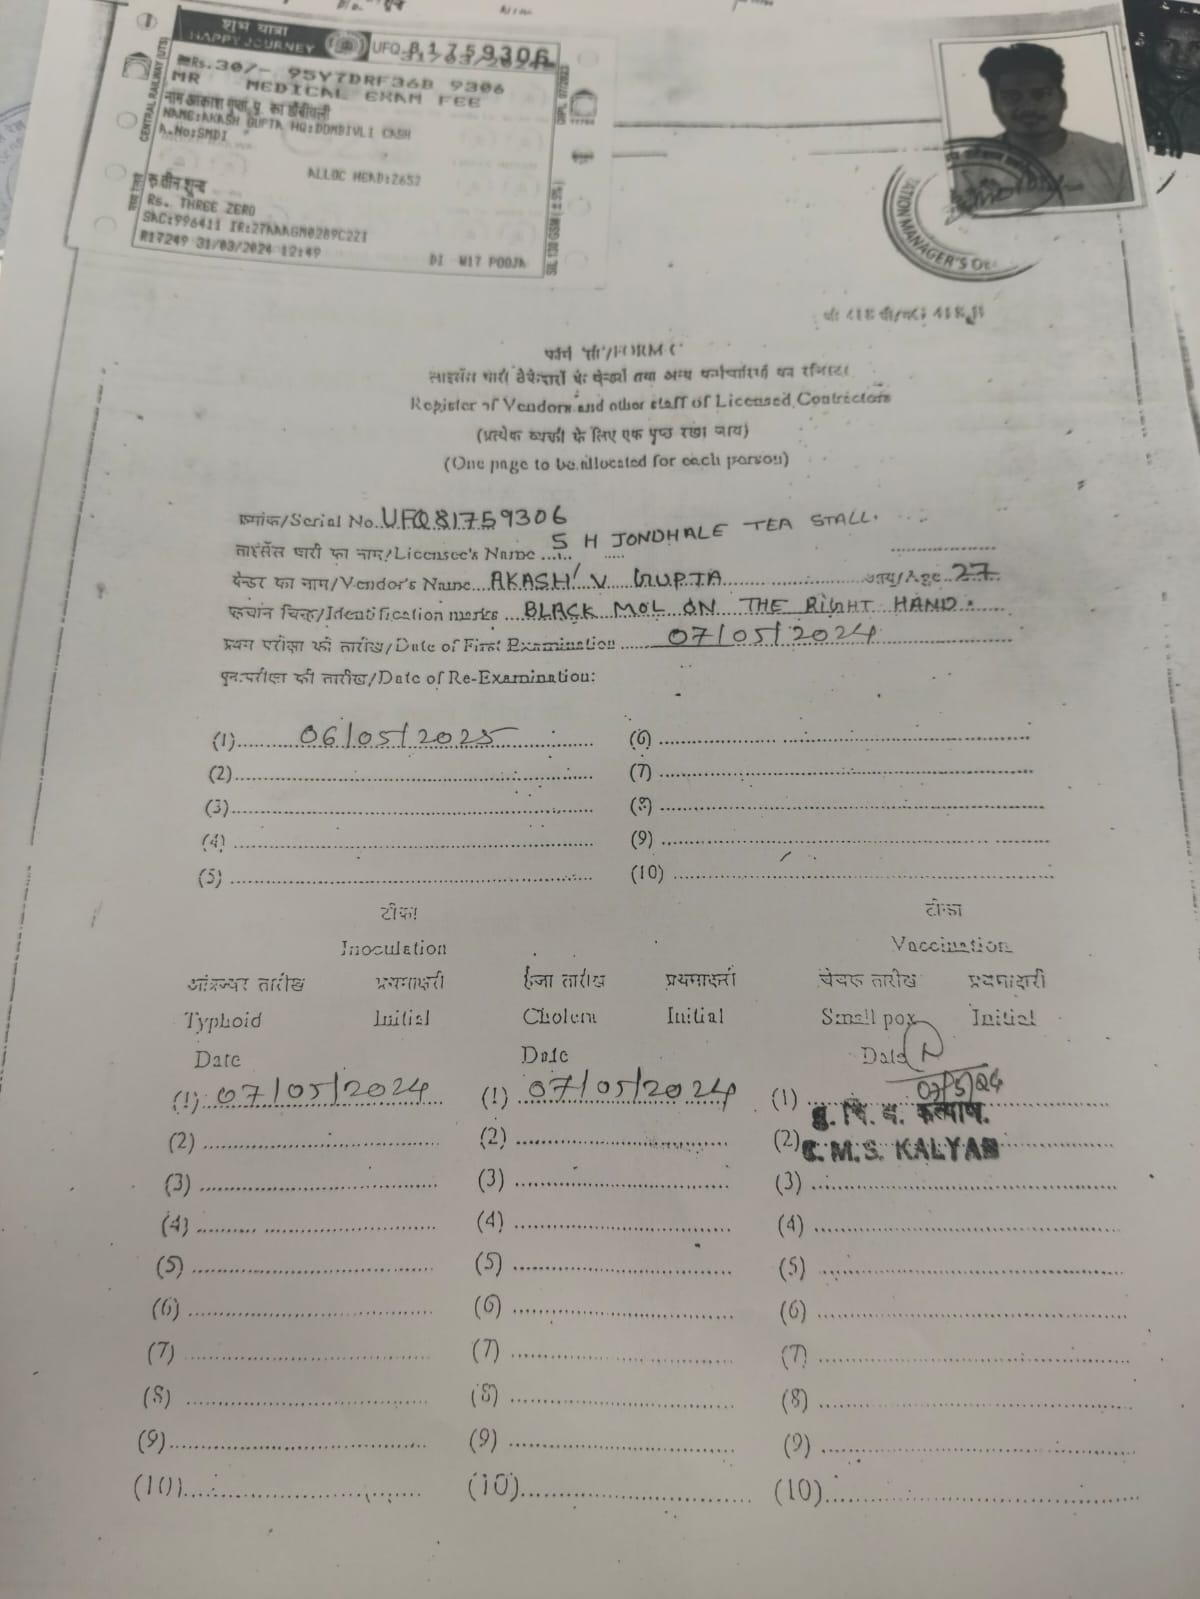 शुभ यात्रा
HAPPY JOURNEY
UFQ 81759306
31/03/2024
CENTRAL RAILWAY (UTS)
मध्य रेल
Rs.30/- 95Y7DRF36B 9306
MR MEDICAL EXAM FEE
नाम आकाश गुप्ता पु. का डोंबीवली
NAME:AKASH GUPTA HQ:DOMBIVLI CASH
A.No:SMDI
ALLOC HEAD:2652
रु तीन शुन्य
Rs. THREE ZERO
SAC:996411 IR:27AAAGM0289C2ZI
R17249 31/03/2024 12:49
DI W17 POOJA
STATION MANAGER'S
फॉर्म 'सी'/FORM C
लाइसेंस धारी ठेकेदारों के वेन्डरों तथा अन्य कर्मचारियों का रजिस्टर
Register of Vendors and other staff of Licensed Contractors
(प्रत्येक व्यक्ती के लिए एक पृष्ठ रखा जाय)
(One page to be allocated for each person)
क्रमांक/Serial No. UFQ81759306
लाइसेंस धारी का नाम/Licensee's Name S H JONDHALE TEA STALL.
वेन्डर का नाम/Vendor's Name AKASH V GUPTA आयु/Age 27
पहचान चिन्ह/Identification marks BLACK MOL ON THE RIGHT HAND.
प्रथम परीक्षा की तारीख/Date of First Examination 07/05/2024
पुनःपरीक्षा की तारीख/Date of Re-Examination:
(1) 06/05/2025 (6)
(2) (7)
(3) (8)
(4) (9)
(5) (10)
टीका टीका
Inoculation Vaccination
आंत्रज्वर तारीख प्रथमाक्षरी हैजा तारीख प्रथमाक्षरी चेचक तारीख प्रथमाक्षरी
Typhoid Initial Cholera Initial Small pox Initial
Date Date Date
(1) 07/05/2024 (1) 07/05/2024 (1) 07/5/24
कल्याण.
(2) (2) (2) C.M.S. KALYAN
(3) (3) (3)
(4) (4) (4)
(5) (5) (5)
(6) (6) (6)
(7) (7) (7)
(8) (8) (8)
(9) (9) (9)
(10) (10) (10)